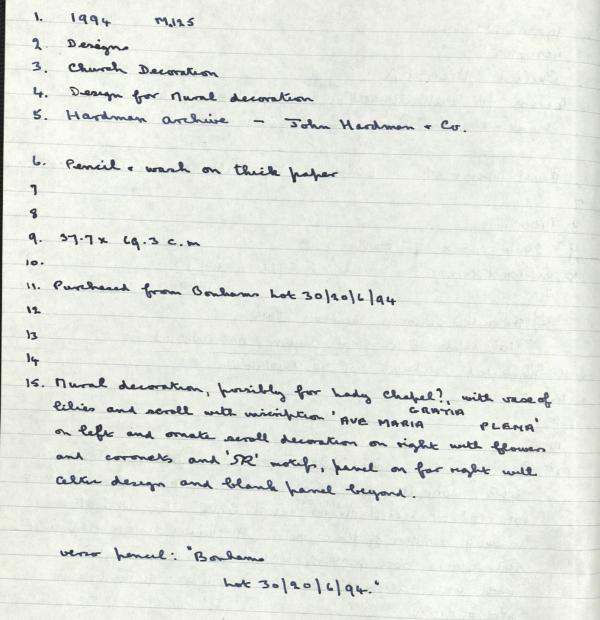 1. 1994 M.125
2 Designs
3. Church Decoration
4. Design for Mural decoration
5. Hardman archive - John Hardman & Co.
6. Pencil & wash on thick paper
7
8
9. 57.7 x 69.3 c.m
10.
11. Purchased from Bonhams Lot 30/20/6/94
12
13
14
15. Mural decoration, possibly for Lady Chapel?, with vase of
lilies and scroll with inscription 'AVE MARIA GRATIA PLENA'
on left and ornate scroll decoration on right with flowers
and coronets and 'SR' motifs, panel on far right with
design and blank panel beyond.
verso pencil: "Bonhams
Lot 30/20/6/94."